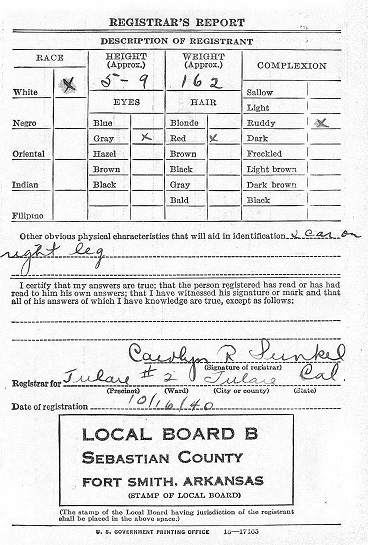 REGISTRAR'S REPORT
DESCRIPTION OF REGISTRANT
RACE
HEIGHT (Approx.)
WEIGHT (Approx.)
COMPLEXION
White X
5-9
162
Sallow
Light
EYES
HAIR
Negro
Blue
Blonde
Ruddy X
Gray X
Red X
Dark
Oriental
Hazel
Brown
Freckled
Brown
Black
Light brown
Indian
Black
Gray
Dark brown
Bald
Black
Filipino
Other obvious physical characteristics that will aid in identification scar on
right leg
I certify that my answers are true; that the person registered has read or has had
read to him his own answers; that I have witnessed his signature or mark and that
all of his answers of which I have knowledge are true, except as follows:
Carolyn R
(Signature of registrar)
Registrar for Tulare # 2 Tulare Cal
(Precinct) (Ward) (City or county) (State)
Date of registration 10/16/40
LOCAL BOARD B
SEBASTIAN COUNTY
FORT SMITH, ARKANSAS
(STAMP OF LOCAL BOARD)
(The stamp of the Local Board having jurisdiction of the registrant
shall be placed in the above space.)
U. S. GOVERNMENT PRINTING OFFICE 16—17105